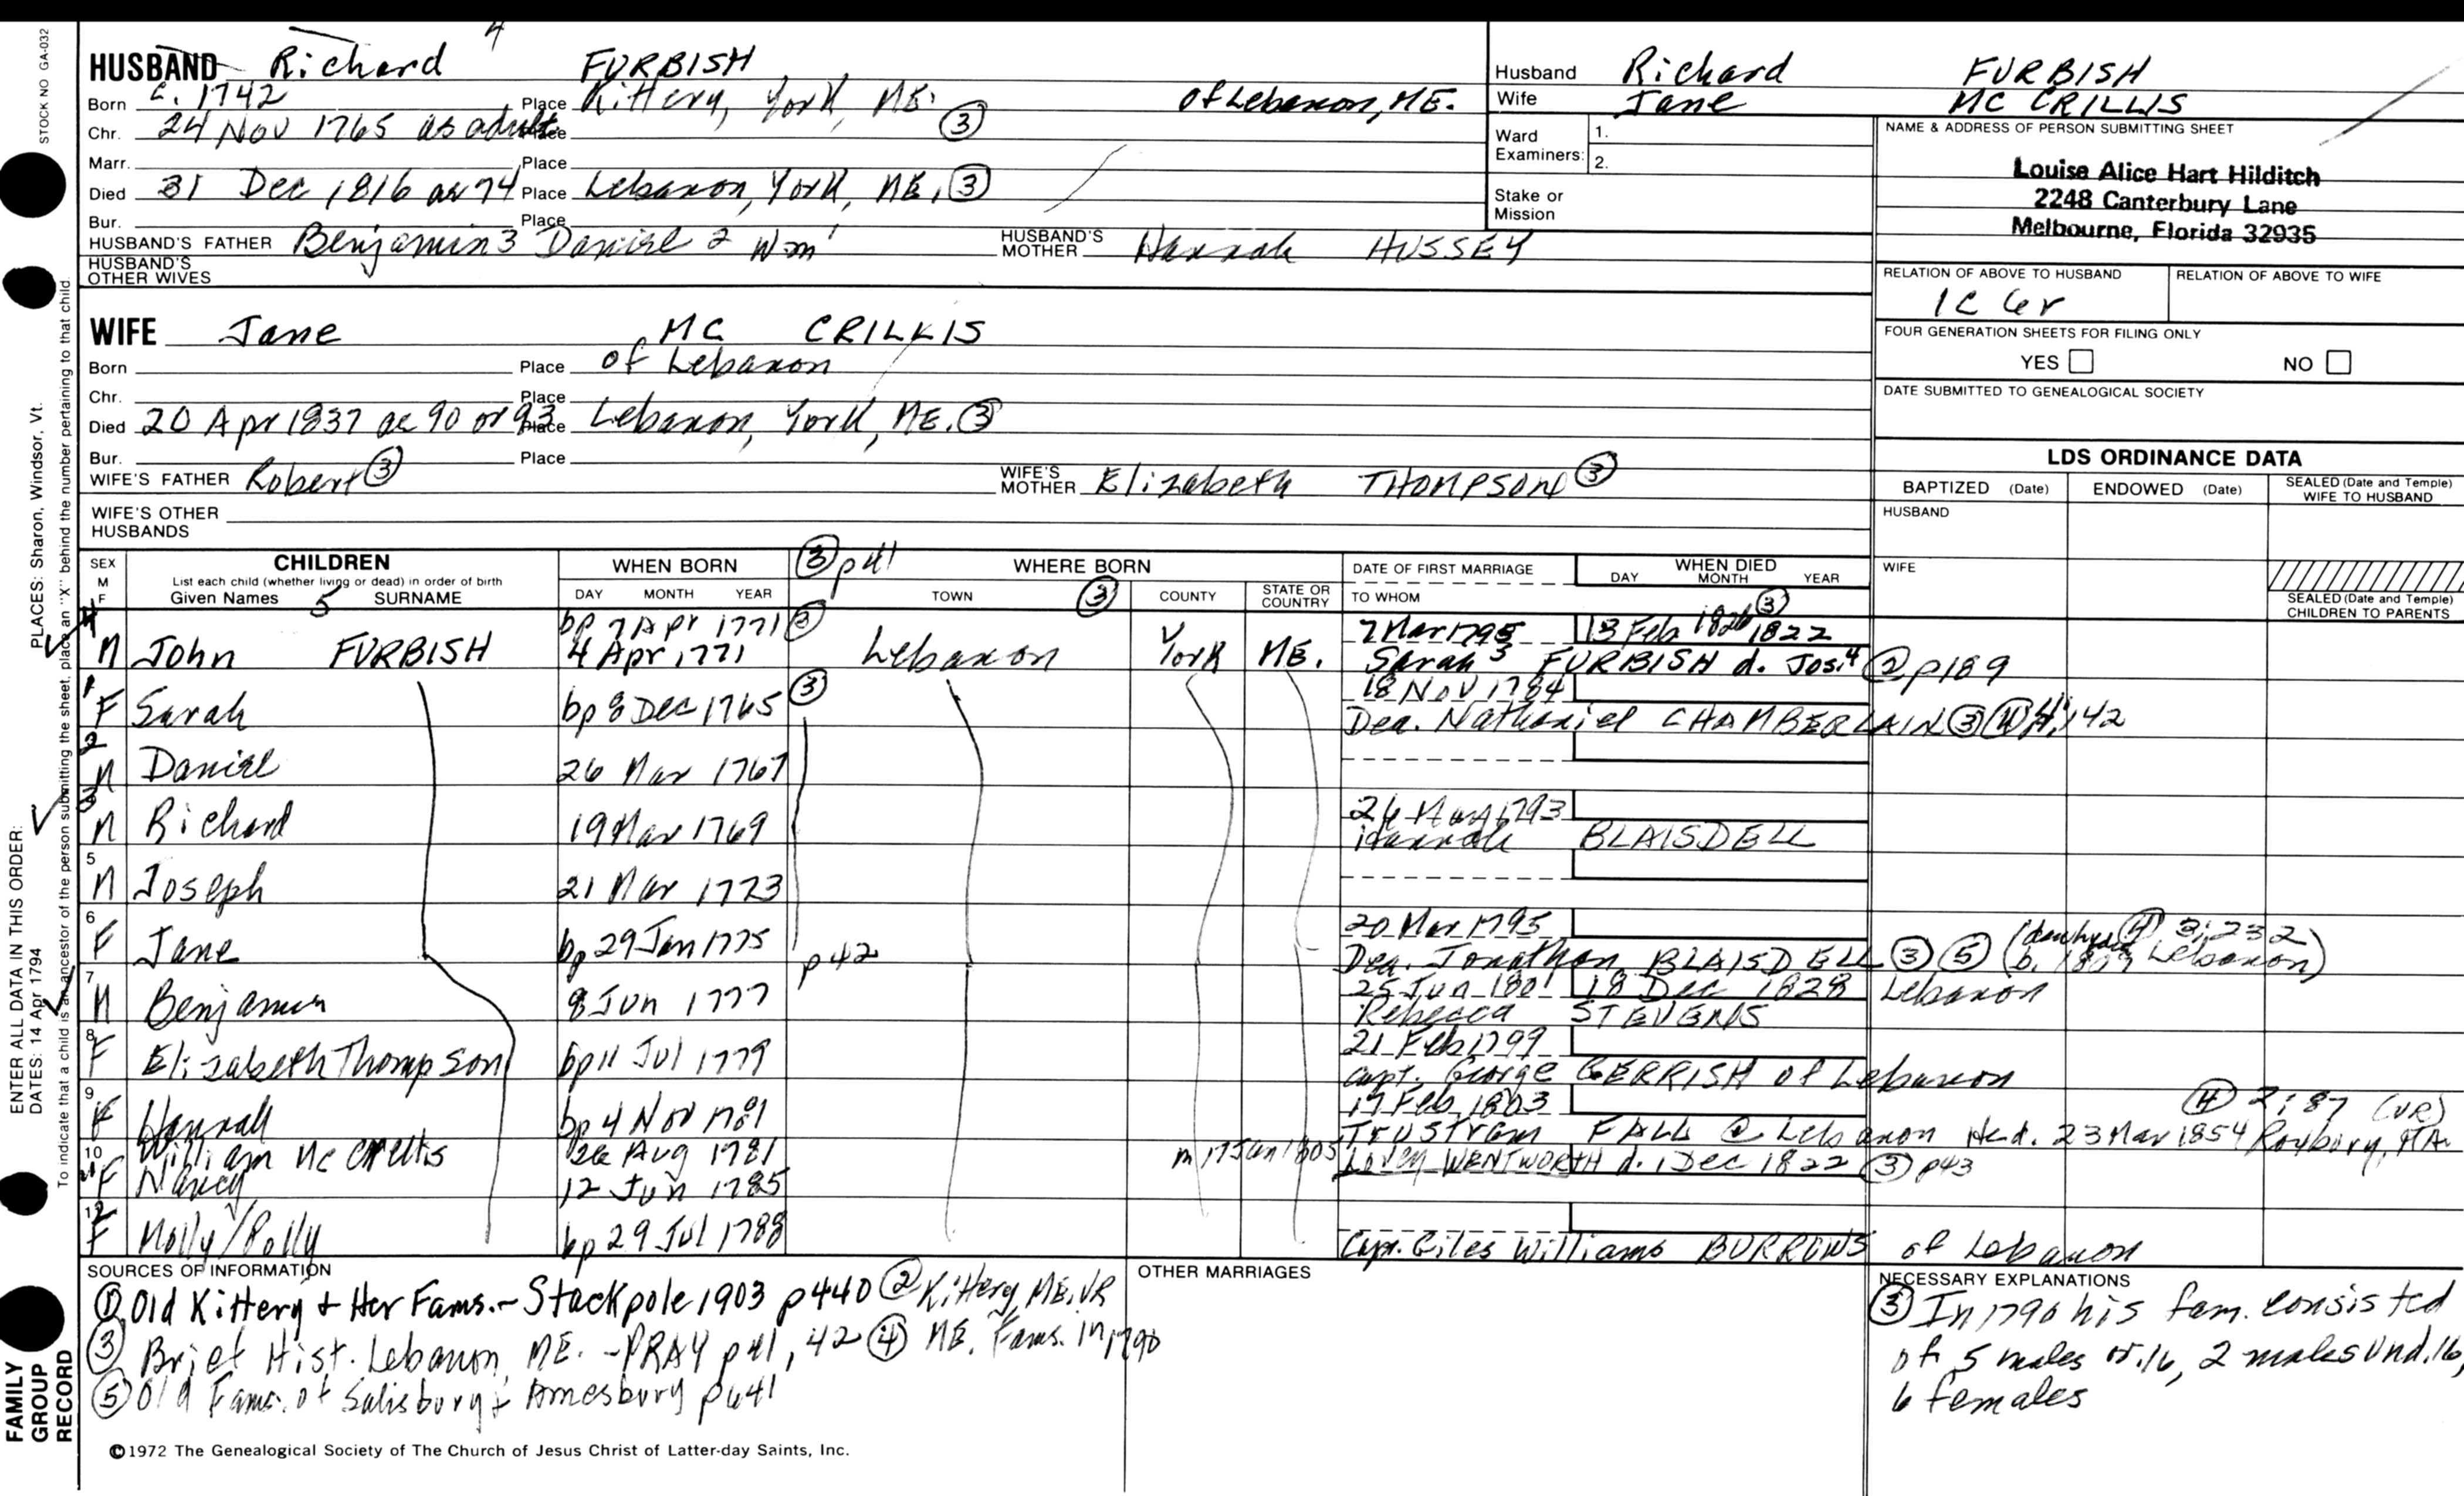 STOCK NO GA-032
HUSBAND Richard 4 FURBISH
Born c. 1742 Place Kittery, York, ME. of Lebanon, ME.
Chr. 24 Nov 1765 as adult Place ③
Marr. Place
Died 31 Dec 1816 ae 74 Place Lebanon, York, ME, ③
Bur. Place
HUSBAND'S FATHER Benjamin 3 Daniel 2 Wm 1 HUSBAND'S MOTHER Hannah HUSSEY
HUSBAND'S OTHER WIVES
WIFE Jane MC CRILLIS
Born Place of Lebanon
Chr. Place
Died 20 Apr 1837 ae 90 or 93 Place Lebanon, York, ME. ③
Bur. Place
WIFE'S FATHER Robert ③ WIFE'S MOTHER Elizabeth THOMPSON ③
WIFE'S OTHER HUSBANDS
Husband Richard FURBISH
Wife Jane MC CRILLIS
Ward Examiners: 1.
2.
Stake or Mission
NAME & ADDRESS OF PERSON SUBMITTING SHEET
Louise Alice Hart Hilditch
2248 Canterbury Lane
Melbourne, Florida 32935
RELATION OF ABOVE TO HUSBAND RELATION OF ABOVE TO WIFE
1C 6r
FOUR GENERATION SHEETS FOR FILING ONLY
YES NO
DATE SUBMITTED TO GENEALOGICAL SOCIETY
LDS ORDINANCE DATA
BAPTIZED (Date) ENDOWED (Date) SEALED (Date and Temple) WIFE TO HUSBAND
HUSBAND
WIFE
SEALED (Date and Temple) CHILDREN TO PARENTS
SEX M F CHILDREN WHEN BORN ③ p41 WHERE BORN DATE OF FIRST MARRIAGE WHEN DIED
List each child (whether living or dead) in order of birth
Given Names 5 SURNAME DAY MONTH YEAR TOWN ③ COUNTY STATE OR COUNTRY TO WHOM DAY MONTH YEAR
4 bp 7 Apr 1771 ③ 7 Mar 1795 13 Feb 1822 ③
M John FURBISH 4 Apr 1771 Lebanon York ME. Sarah FURBISH d. Josi. 4 ② p189
1 ③ 18 Nov 1784
F Sarah bp 8 Dec 1765 Dea. Nathaniel CHAMBERLAIN ③ ④ 142
2
M Daniel 26 Mar 1767
3 1793
M Richard 19 Mar 1769 Hannah BLAISDELL
5
M Joseph 21 Mar 1773
6 20 Mar 1795
F Jane bp 29 Jan 1775 p42 Dea. Jonathan BLAISDELL ③ ⑤ ④ 3:232 (b. 1807 Lebanon)
7 25 Jun 1801 18 Dec 1828 Lebanon
M Benjamin 8 Jun 1777 Rebecca STEVENS
8 21 Feb 1799
F Elizabeth Thompson bp 11 Jul 1779 Capt. George GERRISH of Lebanon
9 17 Feb 1803 ④ 2:87 (VR)
F Hannah bp 4 Nov 1781 Trustram FALL @ Lebanon He d. 23 Mar 1854 Roxbury, MA.
10 William McCrillis 26 Aug 1781 m 17 Jan 1805 Lovey WENTWORTH d. 1 Dec 1822 ③ p43
11 F Nancy 12 Jun 1785
12
F Molly/Polly bp 29 Jul 1788 Capt. Giles Williams BURROWS of Lebanon
SOURCES OF INFORMATION
① Old Kittery + Her Fams. - Stackpole 1903 p440 ② Kittery, ME, VR
③ Brief Hist. Lebanon, ME. - PRAY p41, 42 ④ ME. Fams. in 1790
⑤ Old Fams. of Salisbury + Amesbury p641
OTHER MARRIAGES
NECESSARY EXPLANATIONS
③ In 1790 his fam. consisted
of 5 males ov. 16, 2 males und. 16,
6 females
©1972 The Genealogical Society of The Church of Jesus Christ of Latter-day Saints, Inc.
ENTER ALL DATA IN THIS ORDER: PLACES: Sharon, Windsor, Vt.
DATES: 14 Apr 1794
To indicate that a child is an ancestor of the person submitting the sheet, place an "X" behind the number pertaining to that child.
FAMILY
GROUP
RECORD